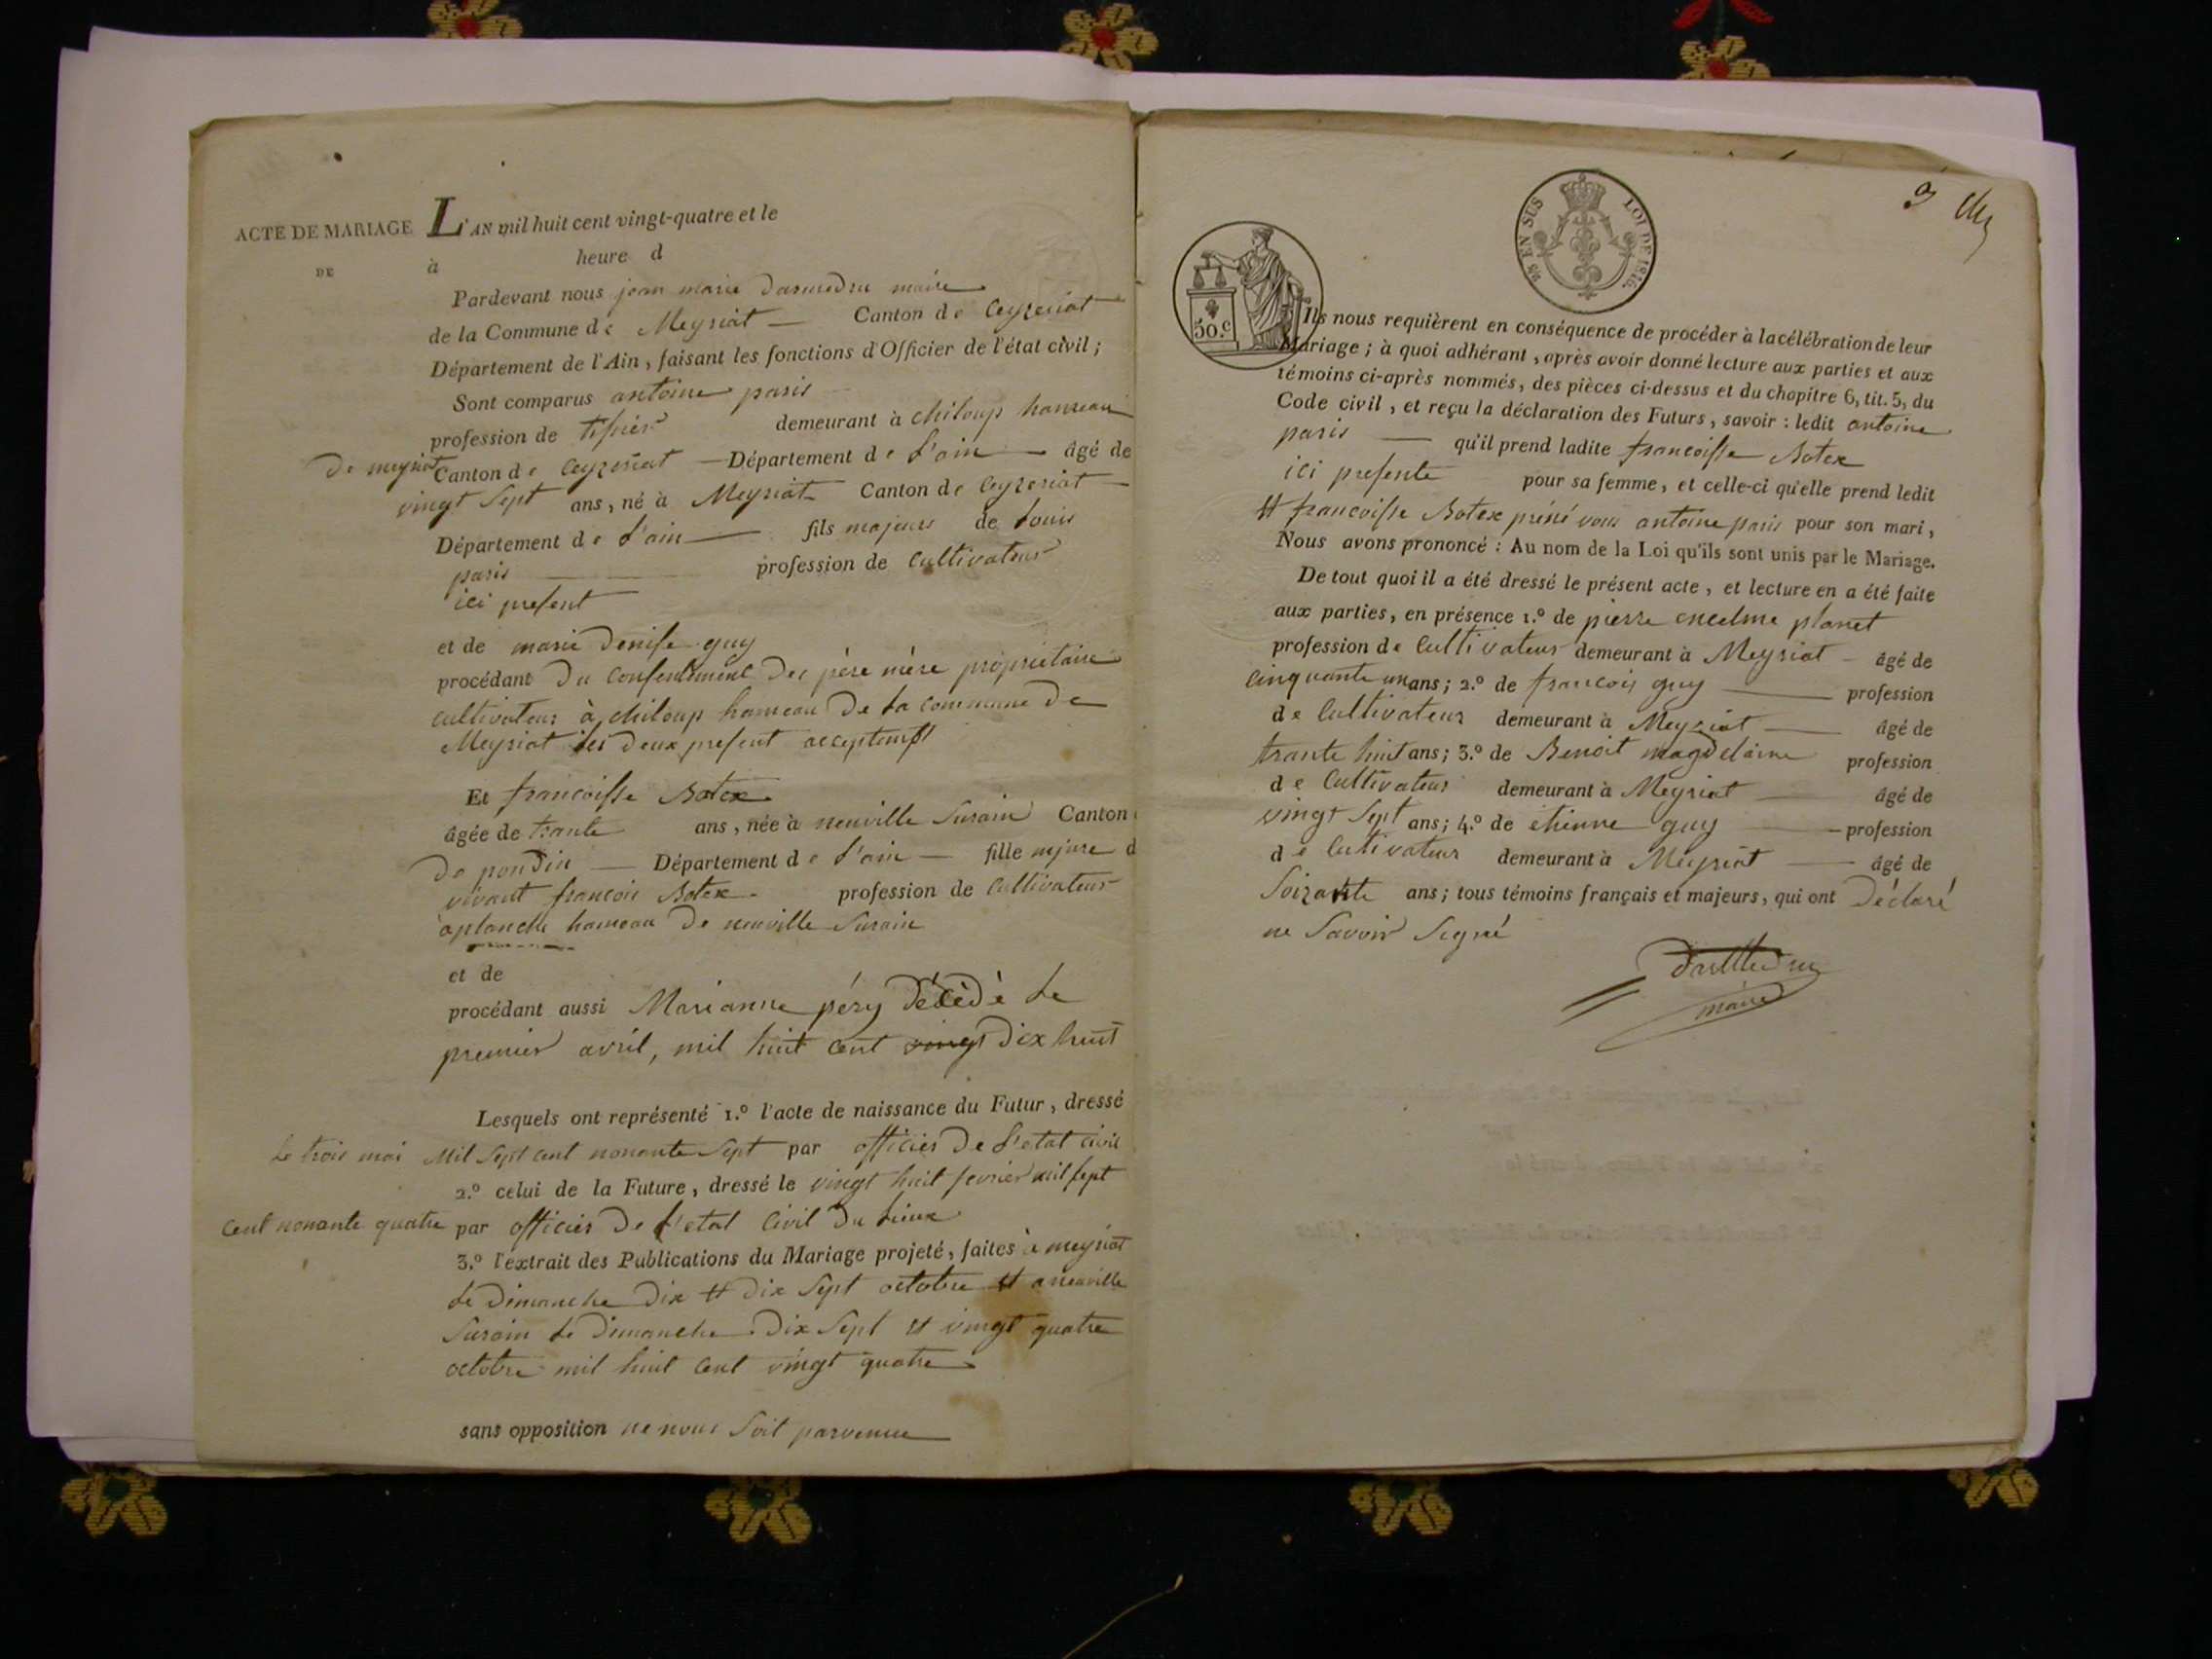 ACTE DE MARIAGE
DE
L'AN mil huit cent vingt-quatre et le
à heure d
Pardevant nous jean marie maire
de la Commune de Meyriat Canton de Ceyzeriat
Département de l'Ain, faisant les fonctions d'Officier de l'état civil;
Sont comparus antoine paris
profession de tissier demeurant à chiloup hameau
de meyriat Canton de Ceyzeriat Département de l'ain âgé de
vingt Sept ans, né à Meyriat Canton de Ceyzeriat
Département de l'ain fils majeur de Louis
paris profession de Cultivateur
ici present
et de marie denise guy
procédant du Consentement des père mère propriétaire
cultivateur à chiloup hameau de la commune de
Meyriat les deux present
Et francoisse Botex
âgée de trante ans, née à neuville Surain Canton
de pondin Département de l'ain fille mjure d
vivant francois Botex profession de Cultivateur
aplanche hameau de neuville Surain
et de
procédant aussi Marianne péry décèdè le
premier avril, mil huit cent vingt dix huit
Lesquels ont représenté 1.º l'acte de naissance du Futur, dressé
le trois mai Mil Sept cent nonante Sept par officier de l'etat civil
2.º celui de la Future, dressé le vingt huit fevrier mil sept
Cent nonante quatre par officier de l'etat Civil du Lieux
3.º l'extrait des Publications du Mariage projeté, faites à meyriat
le dimanche dix et dix Sept octobre et aneuville
Surain le dimanche dix Sept et vingt quatre
octobre mil huit Cent vingt quatre
sans opposition ne nous Soit parvenue
3
50.c
2/5 EN SUS LOI DE 1816.
Ils nous requièrent en conséquence de procéder à la célébration de leur
Mariage; à quoi adhérant, après avoir donné lecture aux parties et aux
témoins ci-après nommés, des pièces ci-dessus et du chapitre 6, tit. 5, du
Code civil, et reçu la déclaration des Futurs, savoir: ledit antoine
paris qu'il prend ladite francoisse Botex
ici presente pour sa femme, et celle-ci qu'elle prend ledit
et francoisse Botex antoine paris pour son mari,
Nous avons prononcé: Au nom de la Loi qu'ils sont unis par le Mariage.
De tout quoi il a été dressé le présent acte, et lecture en a été faite
aux parties, en présence 1.º de pierre encelme planet
profession de Cultivateur demeurant à Meyriat âgé de
Cinquante un ans; 2.º de francois guy profession
de Cultivateur demeurant à Meyriat âgé de
trante huit ans; 3.º de Benoit magdelaine profession
de Cultivateur demeurant à Meyriat âgé de
vingt Sept ans; 4.º de étienne guy profession
de Cultivateur demeurant à Meyriat âgé de
Soixante ans; tous témoins français et majeurs, qui ont Déclaré
ne Savoir Signé
maire